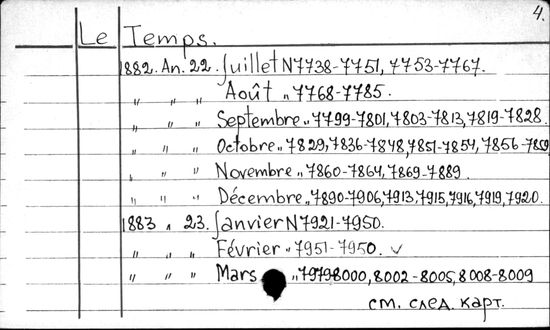 4.
Le Temps.
1882. An. 22. Juillet N7738-7751, 7753-7767.
„ „ „ Août „ 7768-7785.
„ „ „ Septembre „ 7799-7801, 7803-7813, 7819-7828.
„ „ „ Octobre „ 7829, 7836-7848, 7851-7854, 7856-7859
„ „ „ Novembre „ 7860-7864, 7869-7889.
„ „ „ Décembre „ 7890-7906, 7913, 7915, 7916, 7919, 7920.
1883 „ 23. Janvier N7921-7950.
„ „ „ Février „ 7951-7950. ✓
„ „ „ Mars „ 8000, 8002-8005, 8008-8009
см. след. карт.